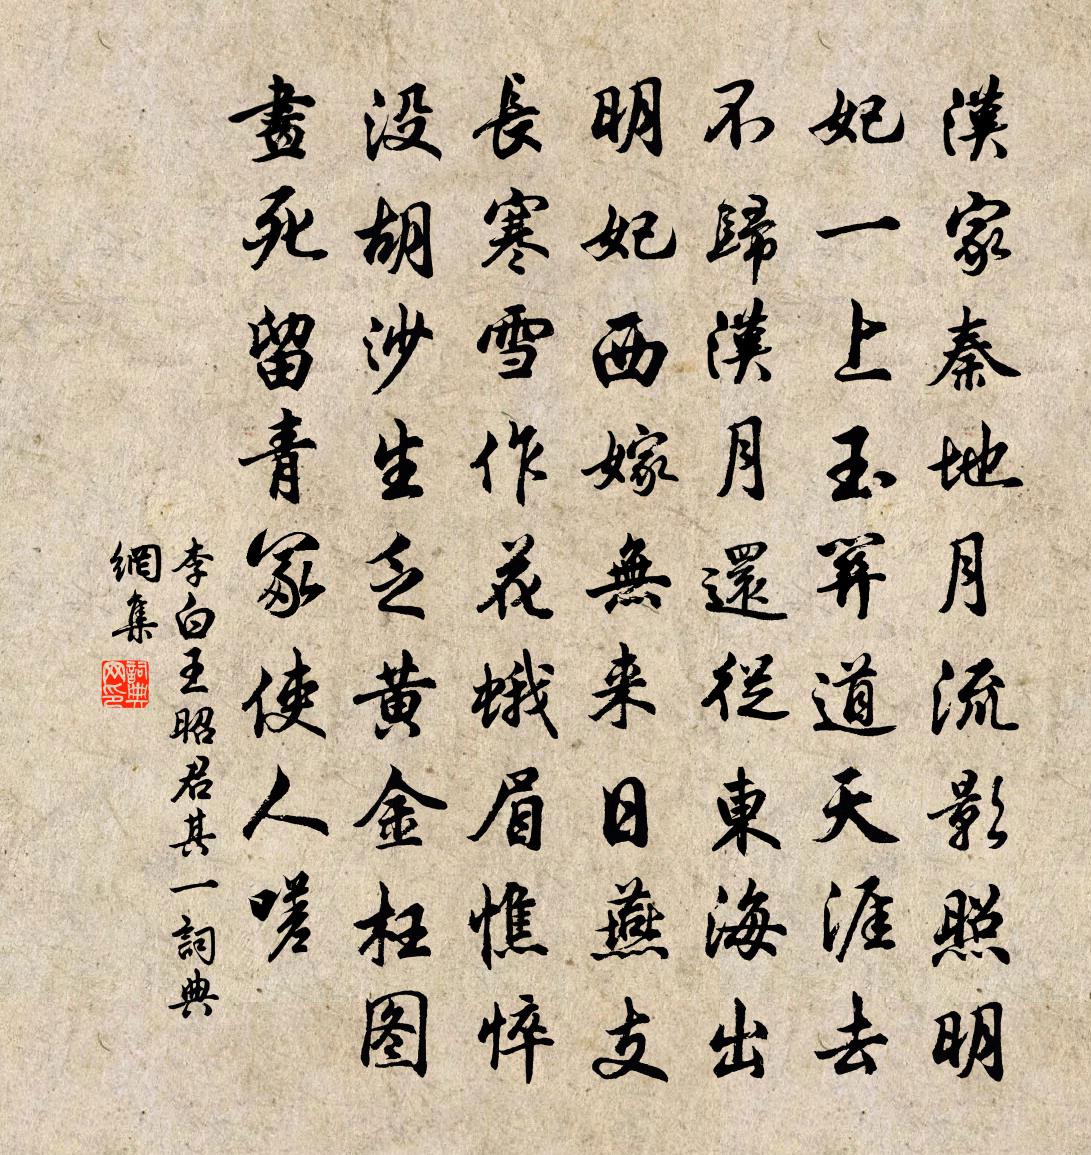 漢家秦地月流影照明
妃一上玉關道天涯去
不歸漢月還從東海出
明妃西嫁無来日燕支
長寒雪作花蛾眉憔悴
没胡沙生乏黄金枉图
畫死留青冢使人嗟
李白王昭君其一詞典
網集
詞典网印